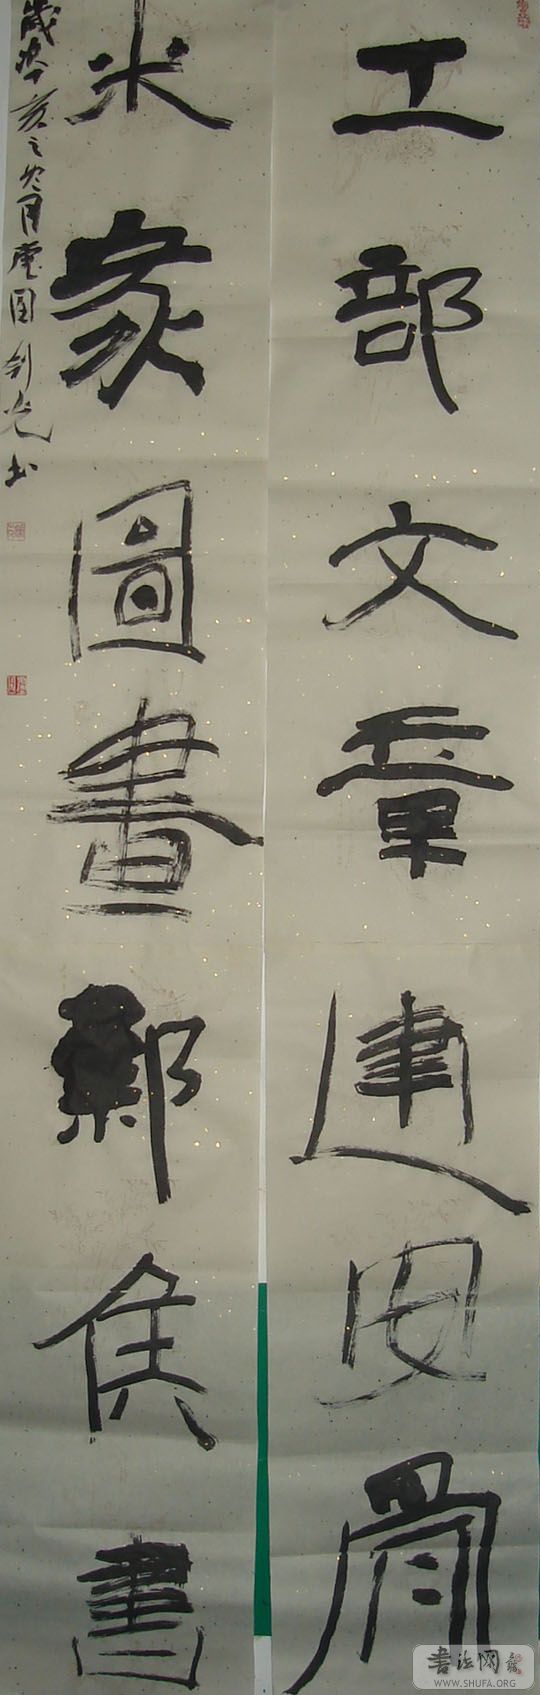 工部文章建安骨
米家圖畫鄴侯書
歲次丁亥之冬月劍光书
書法网
WWW.SHUFA.ORG